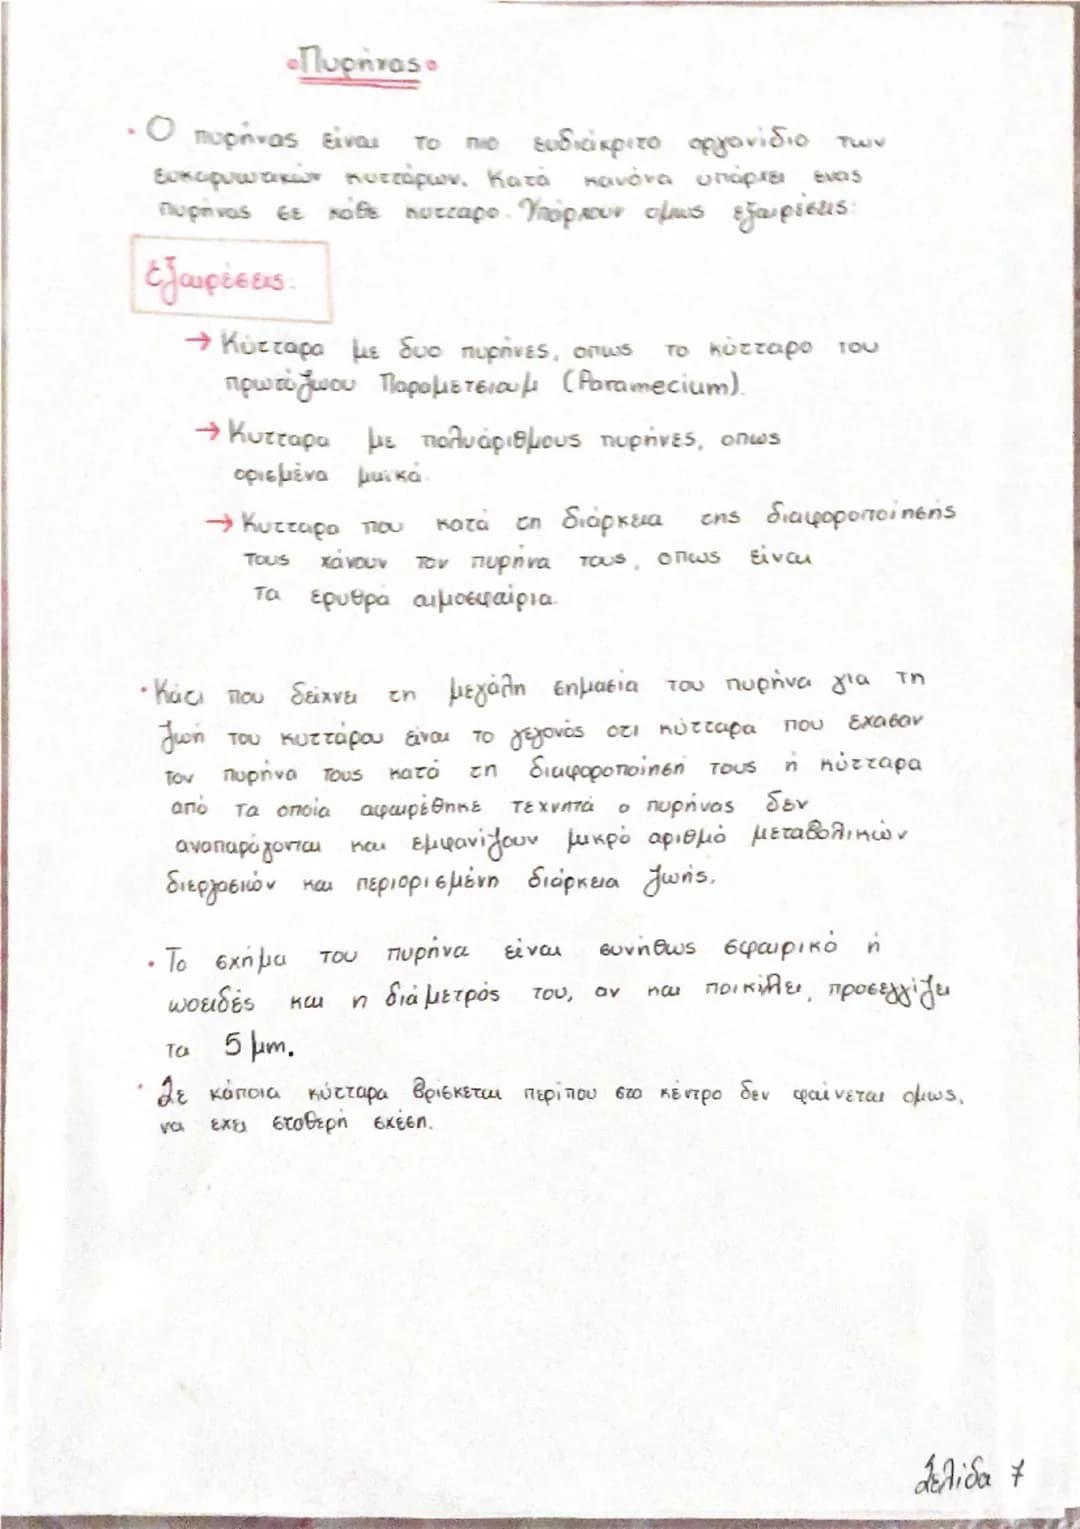 •Πυρήνας•
• Ο πυρήνας είναι το πιο ευδιάκριτο οργανίδιο των
ευκαρυωτικών κυττάρων. Κατά κανόνα υπάρχει ενας
πυρήνας σε κάθε κυτταρο. Υπάρχουν ομως εξαιρέσεις:
Εξαιρέσεις:
→ Κύτταρα με δυο πυρήνες, οπως το κύτταρο του
πρωτόζωου Παραμετσιουμ (Paramecium).
→ Κυτταρα με πολυάριθμους πυρήνες, οπως
ορισμένα μυικά.
→ Κυτταρα που κατά τη διάρκεια της διαφοροποίησής
τους χάνουν τον πυρήνα τους, οπως είναι
τα ερυθρά αιμοσφαίρια.
• Κάτι που δείχνει τη μεγάλη σημασία του πυρήνα για τη
ζωή του κυττάρου είναι το γεγονός οτι κύτταρα που εχασαν
τον πυρήνα τους κατά τη διαφοροποίηση τους ή κύτταρα
από τα οποία αφαιρέθηκε τεχνητά ο πυρήνας δεν
αναπαράγονται και εμφανίζουν μικρό αριθμό μεταβολικών
διεργασιών και περιορισμένη διάρκεια ζωής.
• Το σχήμα του πυρήνα είναι συνήθως σφαιρικό ή
ωοειδές και η διάμετρός του, αν και ποικίλλει, προσεγγίζει
τα 5 μm.
• Σε κάποια κύτταρα βρίσκεται περίπου στο κέντρο δεν φαίνεται ομως,
να εχει σταθερή σχέση.
Σελίδα 7